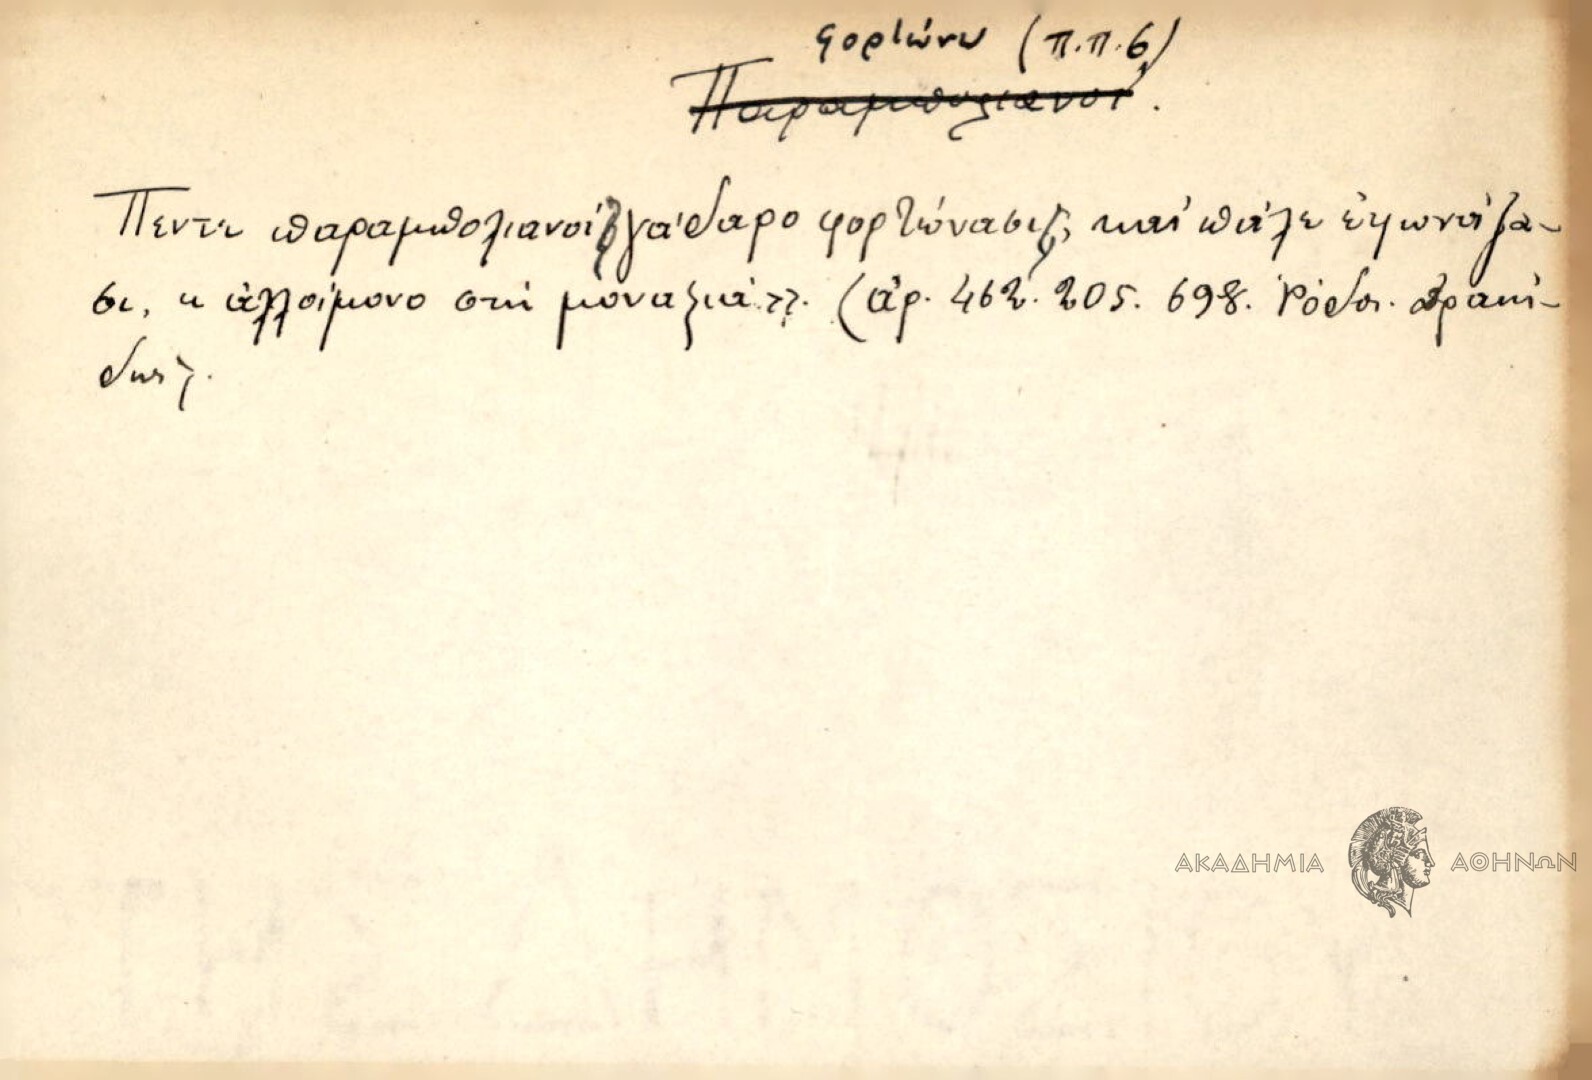 φορτώνω (π.π.6)
Παραμπολιανοί.
Πέντε παραμπολιανοί γάδαρο φορτώνασι, καί πάλε ἐφωνάζα-
σι, κ ἀλλοίμονο στή μοναξιά ». (ἀρ. 462. 205. 698. Ρόδος. Δρακί-
δης).
ΑΚΑΔΗΜΙΑ ΑΘΗΝΩΝ